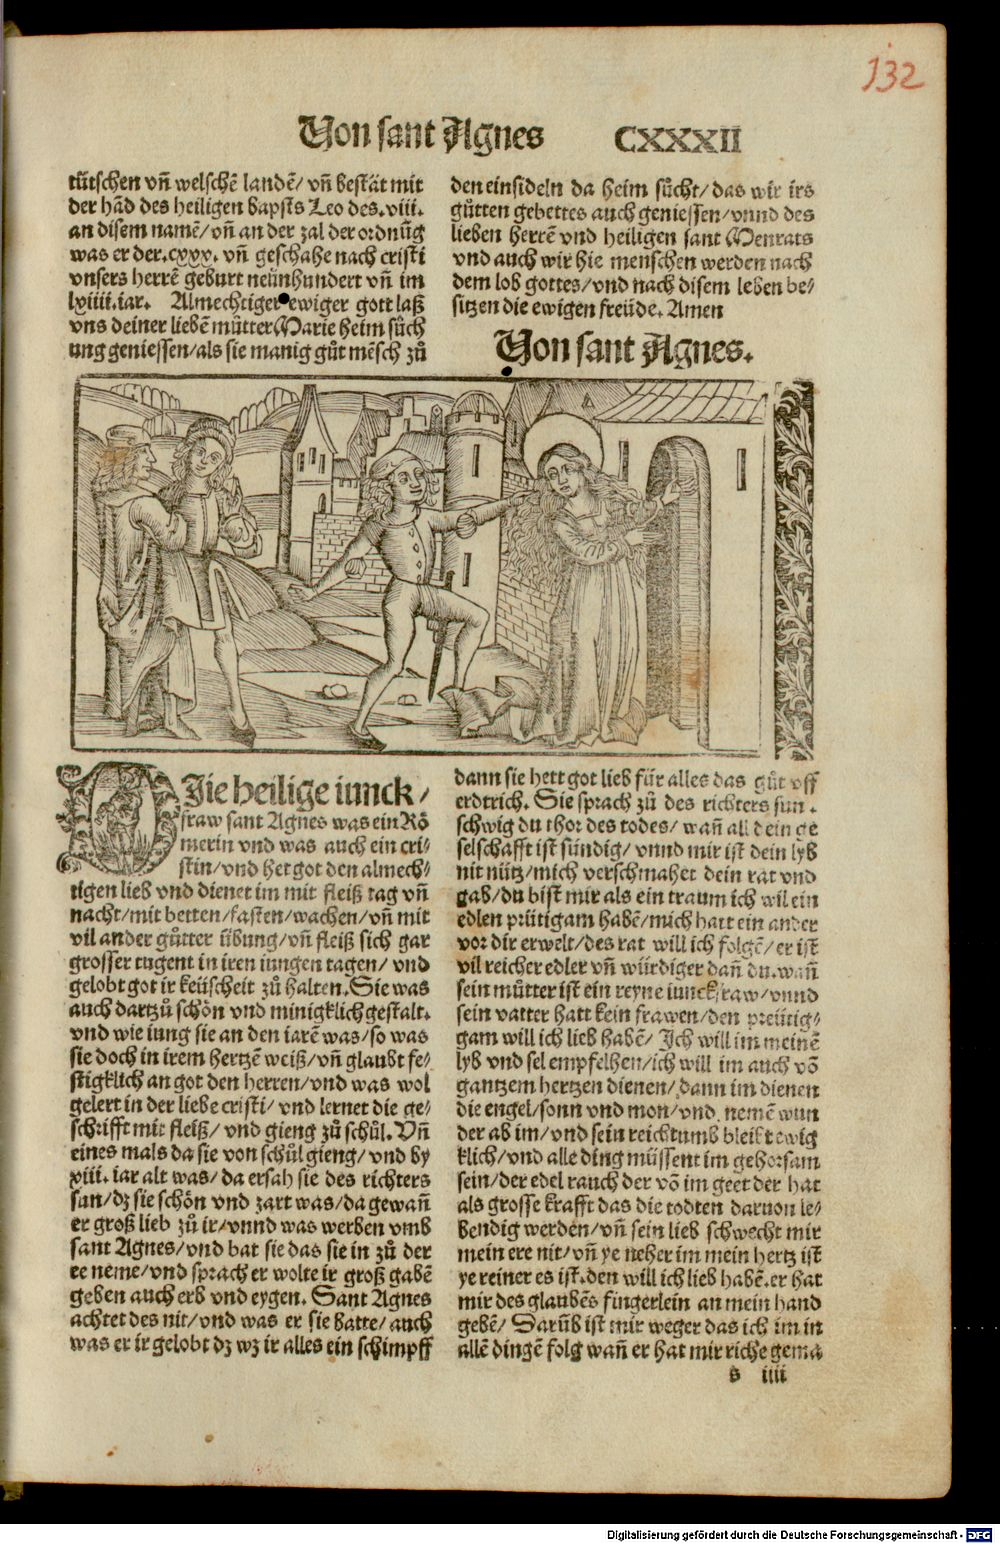 132
Von sant Agnes CXXXII
tütschen vñ welschẽ landẽ/ vñ bestät mit
der hãd des heiligen bapsts Leo des.viii.
an disem namẽ/ vñ an der zal der ordnũg
was er der.cxxx. vñ geschahe nach cristi
vnsers herrẽ geburt neünhundert vñ im
lxiiii.iar. Almechtiger ewiger gott laß
vns deiner liebẽ můtter Marie heim sůch
ung geniessen/als sie manig gůt mẽsch zů
den einsideln da heim sůcht/ das wir irs
gůtten gebettes auch geniessen/vnnd des
lieben herrẽ vnd heiligen sant Menrats
vnd auch wir hie menschen werden nach
dem lob gottes/vnd nach disem leben be⸗
sitzen die ewigen freüde. Amen
Von sant Agnes.
DJie heilige iunck/
fraw sant Agnes was ein Rö
merin vnd was auch ein cri⸗
stin/vnd het got den almech⸗
tigen lieb vnd dienet im mit fleiß tag vñ
nacht/mit betten/fasten/wachen/vñ mit
vil ander gůtter übung/vñ fleiß sich gar
grosser tugent in iren iungen tagen/ vnd
gelobt got ir keüscheit zů halten. Sie was
auch dartzů schön vnd minigklich gestalt.
vnd wie iung sie an den iarẽ was/so was
sie doch in irem hertzẽ weiß/vñ glaubt fe⸗
stigklich an got den herren/vnd was wol
gelert in der liebe cristi/ vnd lernet die ge⸗
schrifft mit fleiß/ vnd gieng zů schůl. Vñ
eines mals da sie von schůl gieng/ vnd by
xiii. iar alt was/ da ersah sie des richters
sun/dz sie schön vnd zart was/da gewañ
er groß lieb zů ir/vnnd was werben vmb
sant Agnes/vnd bat sie das sie in zů der
ee neme/vnd sprach er wolte ir groß gabẽ
geben auch erb vnd eygen. Sant Agnes
achtet des nit/vnd was er sie batte/auch
was er ir gelobt dz wz ir alles ein schimpff
dann sie hett got lieb für alles das gůt vff
erdtrich. Sie sprach zů des richters sun.
schwig du thor des todes/ wañ all dein ge
selschafft ist sündig/ vnnd mir ist dein lyb
nit nütz/mich verschmahet dein rat vnd
gab/du bist mir als ein traum ich wil ein
edlen prütigam habẽ/mich hatt ein ander
vor dir erwelt/des rat will ich folgẽ/er ist
vil reicher edler vñ würdiger dañ du.wañ
sein můtter ist ein reyne iunckfraw/vnnd
sein vatter hatt kein frawen/den preütig⸗
gam will ich lieb habẽ/ Jch will im meinẽ
lyb vnd sel empfelhen/ich will im auch võ
gantzem hertzen dienen/dann im dienen
die engel/sonn vnd mon/vnd nemẽ wun
der ab im/vnd sein reichtumb bleibt ewig
klich/vnd alle ding müssent im gehorsam
sein/der edel rauch der võ im geet der hat
als grosse krafft das die todten daruon le⸗
bendig werden/vñ sein lieb schwecht mir
mein ere nit/vñ ye neher im mein hertz ist
ye reiner es ist.den will ich lieb habẽ.er hat
mir des glaubẽs fingerlein an mein hand
gebẽ/ Darũb ist mir weger das ich im in
allẽ dingẽ folg wañ er hat mir riche gema
s iiii
Digitalisierung gefördert durch die Deutsche Forschungsgemeinschaft - DFG